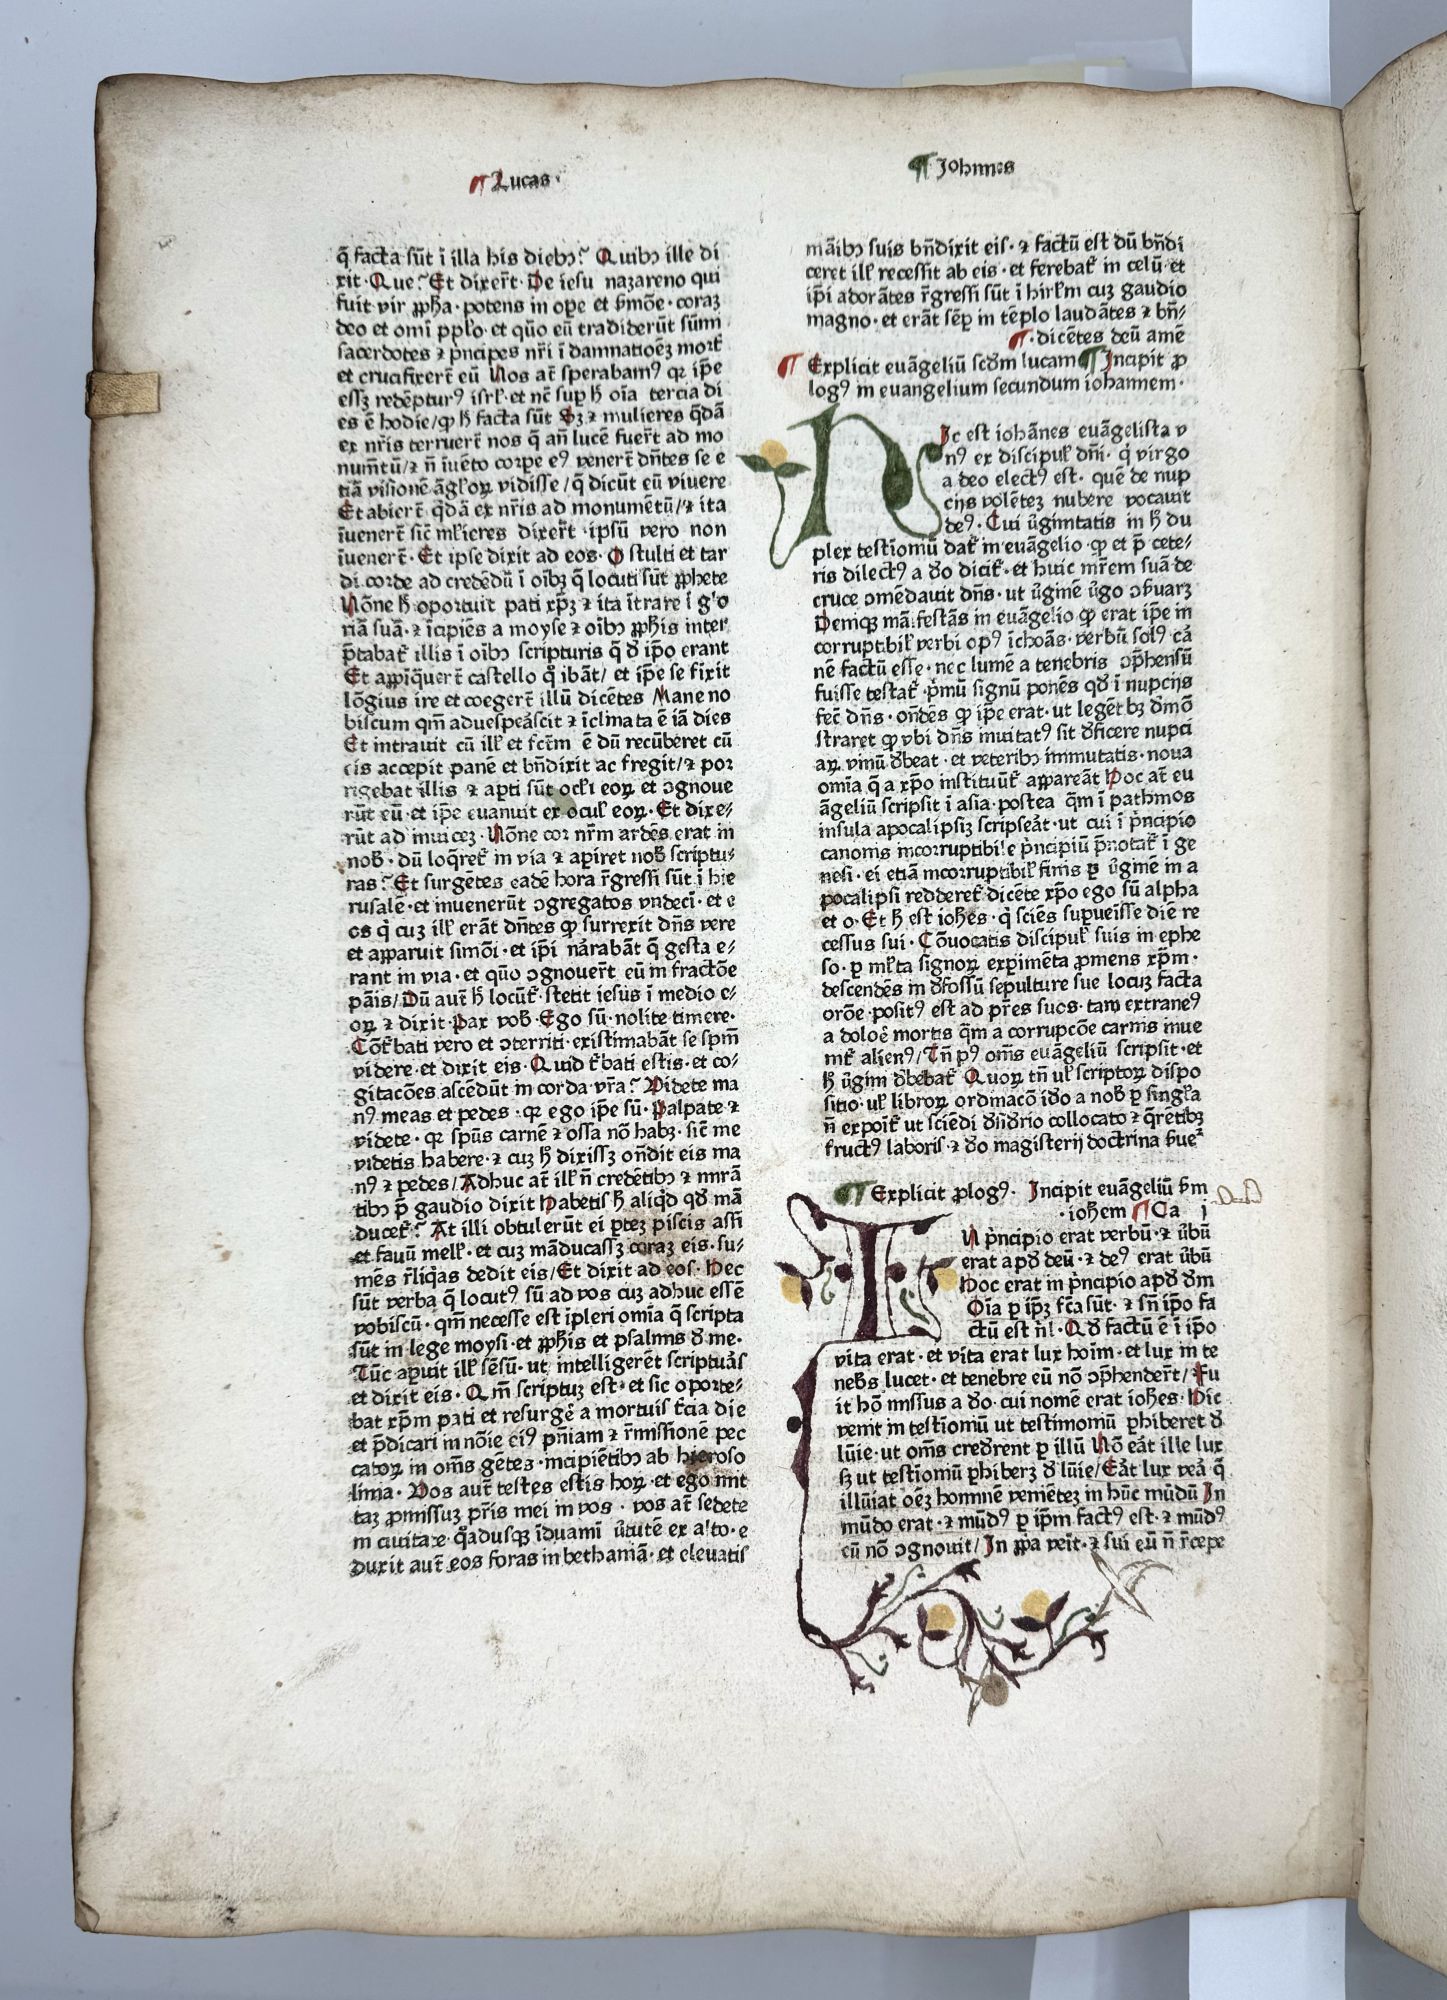 ¶ Lucas·
q̄ facta sūt ī illa his diebꝫ? Quibꝫ ille di
xit· Que? Et dixer̄t· De iesu nazareno qui
fuit vir ꝓph̄a· potens in op̄e et ẜmōe· coraꝫ
deo et omī ppl̄o· et quō eū tradiderūt sūmi
sacerdotes ⁊ p̄ncipes nr̄i ī damnatioēꝫ mort̄
et crucifixer̄t eū Nos at̄ sperabamꝰ qꝛ ip̄e
essꝫ redēpturꝰ isrl̄· et nc̄ sup̄ h̄ oīa tercia di
es ē hodie/ꝙ h̄ facta sūt Sꝫ ⁊ mulieres q̄dā
ex nr̄is terruer̄t nos q̄ an̄ lucē fuer̄t ad mo
num̄tū/⁊ n̄ īuēto corꝑe eꝰ vener̄t dn̄tes se e
tiā visionē āgl̓oꝝ vidisse/q̄ dicūt eū viuere
Et abier̄t q̄dā ex nr̄is ad monumētū/⁊ ita
īuener̄t sic̄ ml̓ieres dixer̄t· ipsū vero non
īuener̄t· Et ipse dixit ad eos· O stulti et tar
di corde ad credēdū ī oībꝫ q̄ locuti sūt ꝓphete
Nōne h̄ oportuit pati xp̄ꝫ ⁊ ita ītrare ī gl̓o
riā suā· ⁊ īcipiēs a moyse ⁊ oībꝫ ꝓph̄is inter
p̄tabat̄ illis ī oībꝫ scripturis q̄ ꝺ ip̄o erant
Et aꝓpīq̄uer̄t castello q° ibāt/ et ip̄e se fīxit
lōgius ire et coeger̄t illū dicētes Mane no
biscum qm̄ aduespeāscit ⁊ īclinata ē iā dies
Et intrauit cū ill̓ et fc̄tm̄ ē dū recūberet cū
eis accepit panē et bn̄dixit ac fregit/⁊ por
rigebat illis ⁊ aꝑti sūt ocl̓i eoꝝ et ꝯgnoue
rūt eū· et ip̄e euanuit ex ocul̓ eoꝝ· Et dixe⸗
rūt ad inuiceꝫ· Nōne cor nr̄m ardēs erat in
nob̄· dū loq̄ret̄ in via ⁊ aꝑiret nob̄ scriptu⸗
ras? Et surgētes eadē hora r̄gressi sūt ī hie
rusalē· et inuenerūt ꝯgregatos vndecī· et e
os q̇ cuꝫ ill̓ erāt dn̄tes ꝙ surrexit dn̄s vere
et apparuit simōi· et ip̄i nȧrabāt q̄ gesta e⸗
rant in via· et quō ꝯgnouer̄t eū in fractōe
pāis/Dū aut̄ h̄ locūt̄· stetit iesus ī medio e⸗
oꝝ ⁊ dixit· Pax vob̄· Ego sū· nolite timere·
Cōt̄bati vero et ꝯterriti· existimabāt se spm̄
videre· et dixit eis· Quid t̄bati estis· et co⸗
gitacōes ascēdūt in corda vr̄a? Videte ma
nꝰ meas et pedes· qꝛ ego ip̄e sū· Palpate ⁊
videte· qꝛ spūs carnē ⁊ ossa nō habꝫ· sic̄ me
videtis habere· ⁊ cuꝫ h̄ dixissꝫ on̄dit eis ma
nꝰ ⁊ pedes/Adhuc at̄ ill̓ n̄ credētibꝫ ⁊ mirā
tibꝫ p̄ gaudio dixit Habetis h̄ aliq̇d qꝺ mā
ducet̄? At illi obtulerūt ei ꝑteꝫ piscis assi
et fauū mell̓· et cuꝫ māducassꝫ coraꝫ eis· su⸗
mēs r̄liq̇as dedit eis/Et dixit ad eos· Hec
sūt verba q̄ locutꝰ sū ad vos cuꝫ adhuc essē
vobiscū· qm̄ necesse est īpleri omīa q̄ scripta
sūt in lege moysi· et ꝓph̄is et psalmis ꝺ me·
Tūc aꝑuit ill̓ sēsū· ut intelligerēt scriptuȧs
et dixit eis· Qm̄ scriptuꝫ est· et sic oporte⸗
bat xp̄m pati et resurgē a mortuis t̄cia die
et p̄dicari in nōie eiꝰ pn̄iam ⁊ r̄missionē pec
catoꝝ in om̄s gētes· incipiētibꝫ ab hieroso
lima· Vos aut̄ testes estis hoꝝ· et ego mit
taꝫ ꝓmissuꝫ pr̄is mei in vos· vos at̄ sedete
in ciuitate· q̄adusqꝫ īduamī v̄tutē ex alto· e
duxit aut̄ eos foras in bethaniā· et eleuatis
¶ Johannes
māibꝫ suis bn̄dixit eis· ⁊ factū est dū bn̄di
ceret ill̓ recessit ab eis· et ferebat̄ in celū· et
ip̄i adorātes r̄gressi sūt ī hirl̓m cuꝫ gaudio
magno· et erāt sēꝑ in tēplo laudātes ⁊ bn̄⸗
¶·dicētes deū amē
¶ Explicit euāgeliū scd̄m lucam ¶ Incipit ꝓ
logꝰ in euangelium secundum iohannem·
Hic est iohānes euāgelista v
nꝰ ex discipul̓ dn̄i· q̇ virgo
a deo electꝰ est· quē de nup
cijs volēteꝫ nubere vocauit
deꝰ· Cui v̄ginitatis in h̄ du
plex testīoniū dat̄ in euāgelio· ꝙ et p̄ cete⸗
ris dilectꝰ a ꝺo dicit̄· et huic mr̄em suā de
cruce ꝯmēdauit dn̄s· ut v̄ginē v̄go ꝯẜuaꝫ
Deniqꝫ māifestās in euāgelio ꝙ erat ip̄e in
corruptibil̓ verbi opꝰ īchoās· verbū solꝰ cȧ
nē factū esse· nec lumē a tenebris ꝯp̄hensū
fuisse testat̄· p̄mū signū ponēs qꝺ ī nupcijs
fec̄ dn̄s· on̄dēs ꝙ ip̄e erat· ut legētbꝫ ꝺmō
straret ꝙ vbi dn̄s inuitatꝰ sit ꝺficere nupci
aꝝ vinū ꝺbeat· et veteribꝫ immutatis· noua
omīa q̄ a xp̄o instituūt̄ appareāt Hoc at̄ eu
āgeliū scripsit ī asia· postea q̄m ī pathmos
insula apocalipsiꝫ scripseȧt· ut cui ī ṗncipio
canonis incorruptibile ṗncipiū p̄notat̄ ī ge
nesi· ei etiā incorruptibil̓ finis ꝑ v̄ginē in a
pocalipsi redderet̄ dicēte xp̄o ego sū alpha
et o· Et h̄ est ioh̄es· q̇ sciēs supueīsse diē re
cessus sui· Cōuocatis discipul̓ suis in ephe
so· ꝑ ml̓ta signoꝝ exꝑimēta ꝓmens xp̄m·
descendēs in ꝺfossū sepulture sue locuꝫ facta
orōe· positꝰ est ad pr̄es suos· tam extraneꝰ
a dolōe mortis q̄m a corrupcōe carnis inue
nit̄ alienꝰ/Tn̄ pꝰ om̄s euāgeliū scripsit· et
h̄ v̄gini ꝺbebat̄ Quoꝝ tn̄ ul̓ scriptoꝝ dispo
sitio· ul̓ libroꝝ ordinacō iꝺo a nob̄ ꝑ singl̓a
n̄ expoīt̄ ut sciēdi ꝺn̄ꝺrio collocato ⁊ q̄rētibꝫ
fructꝰ laboris· ⁊ ꝺo magisterij doctrina ẜueͭ
¶ Explicit ꝓlogꝰ· Incipit euāgeliū ẜm
·ioh̄em ¶ Ca j
IN ṗncipio erat verbū· ⁊ v̄bū
erat apꝺ deū· ⁊ deꝰ erat v̄bū
Hoc erat in ṗncipio apꝺ ꝺm
Oīa ꝑ ip̄ꝫ fc̄a sūt· ⁊ sn̄ ip̄o fa
ctū est nl̓· Qꝺ factū ē ī ip̄o
vita erat· et vita erat lux hoīm· et lux in te
neb̄s lucet· et tenebre eū nō ꝯp̄hender̄t/Fu
it hō missus a ꝺo· cui nomē erat ioh̄es· Hic
venit in testīoniū ut testimoniū ꝑhiberet ꝺ
lūie· ut om̄s creꝺrent ꝑ illū Nō eȧt ille lux
ẜꝫ ut testīoniū ꝑhiberꝫ ꝺ lūie/Eȧt lux veȧ q̄
illūiat oēꝫ hominē veniēteꝫ in hūc mūdū In
mūdo erat· ⁊ mūdꝰ ꝑ ip̄m factꝰ est· ⁊ mūdꝰ
eū nō ꝯgnouit/In ꝓp̄a veīt· ⁊ sui eū n̄ r̄cepe